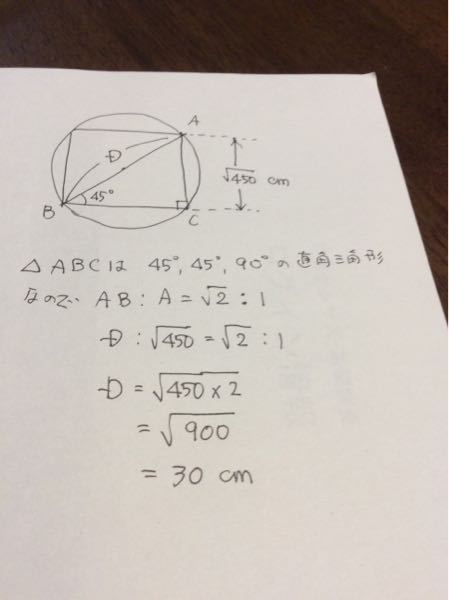 A
D
√450 cm
45°
B
C
△ABCは 45°, 45°, 90°の直角三角形
なので AB : A = √2 : 1
D : √450 = √2 : 1
D = √450×2
= √900
= 30 cm